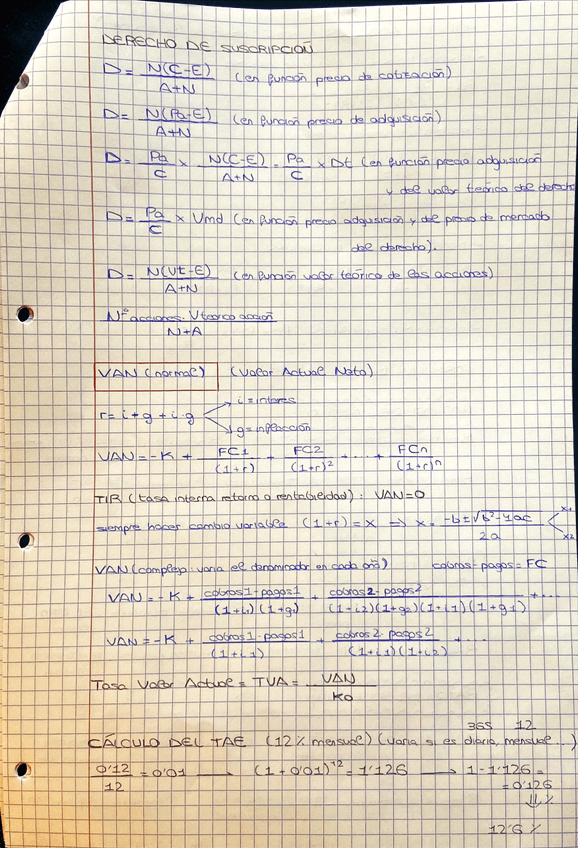 DERECHO DE SUSCRIPCIÓN
D = N(C-E) / A+N (en función precio de cotización)
D = N(Pa-E) / A+N (en función precio de adquisición)
D = Pa/C × N(C-E) / A+N = Pa/C × Dt (en función precio adquisición
y del valor teórico del derecho
D = Pa/C × Vmd (en función precio adquisición y del precio de mercado
del derecho).
D = N(Vt-E) / A+N (en función valor teórico de las acciones)
Nº acciones · V teórico acción / N+A
VAN (normal) (Valor Actual Neto)
r = i + g + i·g
i = interés
g = inflacción
VAN = -K + FC1 / (1+r) + FC2 / (1+r)² + ... + FCn / (1+r)ⁿ
TIR (tasa interna retorno o rentabilidad): VAN = 0
siempre hacer cambio variable (1+r) = x → x = -b ± √b²-4ac / 2a
x1
x2
VAN (complejo: varia el denominador en cada año) cobros - pagos = FC
VAN = -K + cobros1 - pagos1 / (1+i1)(1+g1) + cobros2 - pagos2 / (1+i2)(1+g2)(1+i1)(1+g1) + ...
VAN = -K + cobros1 - pagos1 / (1+i1) + cobros2 - pagos2 / (1+i1)(1+i2) + ...
Tasa Valor Actual = TVA = VAN / K0
365 12
CÁLCULO DEL TAE (12% mensual) (varia si es diaria, mensual...)
0'12 / 12 = 0'01 → (1+0'01)¹² = 1'126 → 1 - 1'126 =
= 0'126
⇓ %
12'6 %